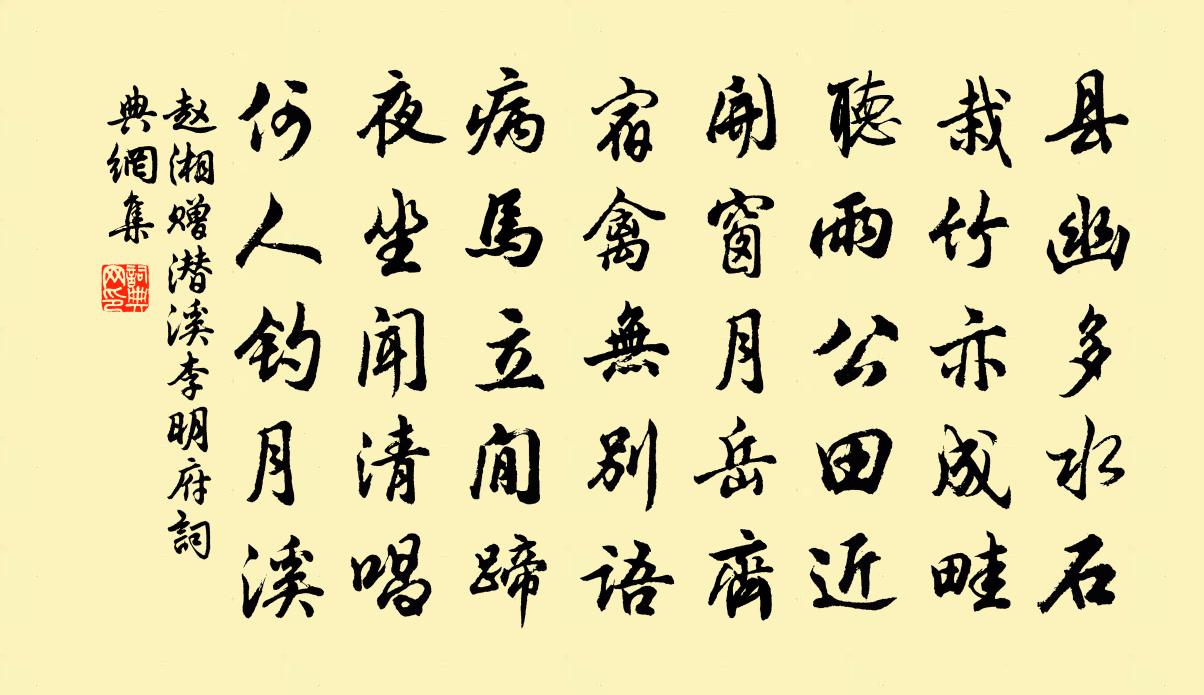 县幽多水石
栽竹亦成畦
聽雨公田近
開窗月岳齊
宿禽無別语
病馬立閒蹄
夜坐闻清唱
何人钓月溪
赵湘赠潜溪李明府詞
典網集
詞典网印